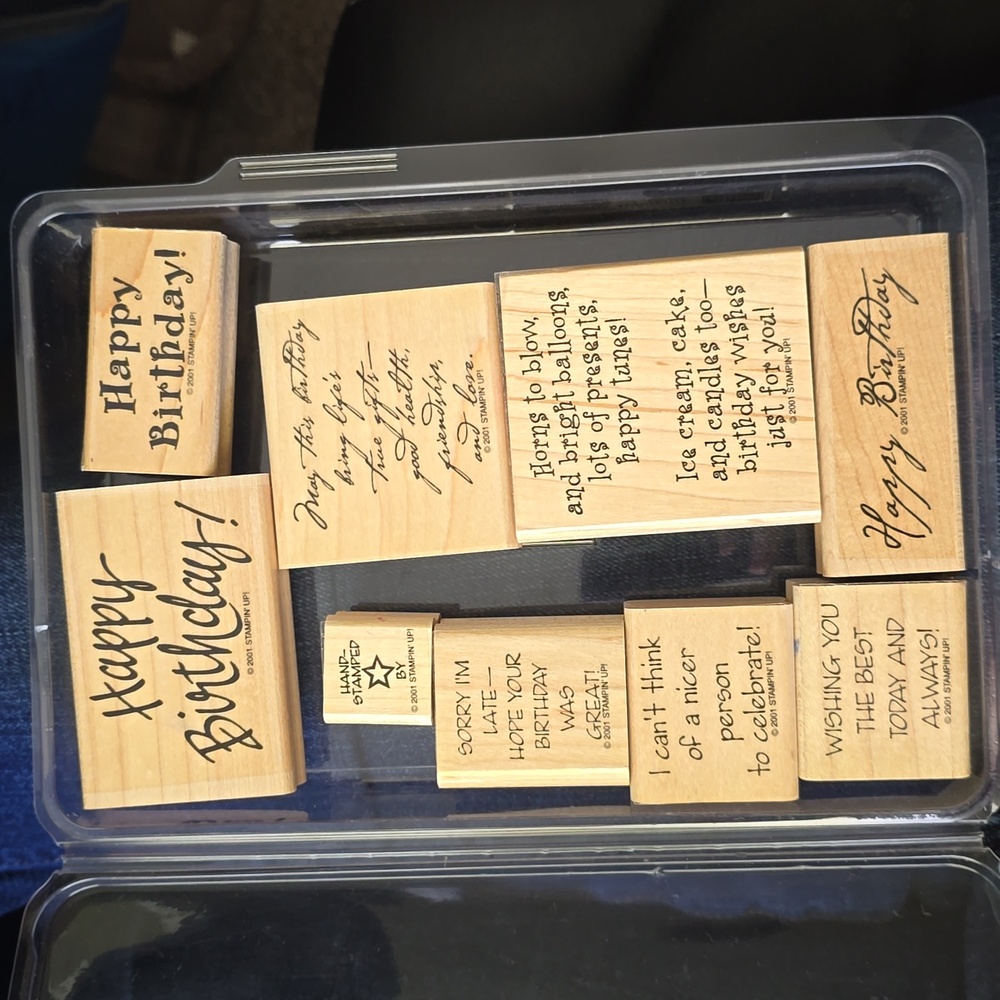 Happy
Birthday!
© 2001 STAMPIN' UP!
Happy
Birthday!
© 2001 STAMPIN' UP!
May this birthday
bring life's
true gifts—
good health,
friendship,
and love.
© 2001 STAMPIN' UP!
HAND-
STAMPED
BY
© 2001 STAMPIN' UP!
Horns to blow,
and bright balloons,
lots of presents,
happy tunes!
Ice cream, cake,
and candles too—
birthday wishes
just for you!
© 2001 STAMPIN' UP!
SORRY I'M
LATE—
HOPE YOUR
BIRTHDAY
WAS
GREAT!
© 2001 STAMPIN' UP!
I can't think
of a nicer
person
to celebrate!
© 2001 STAMPIN' UP!
Happy Birthday
© 2001 STAMPIN' UP!
WISHING YOU
THE BEST
TODAY AND
ALWAYS!
© 2001 STAMPIN' UP!